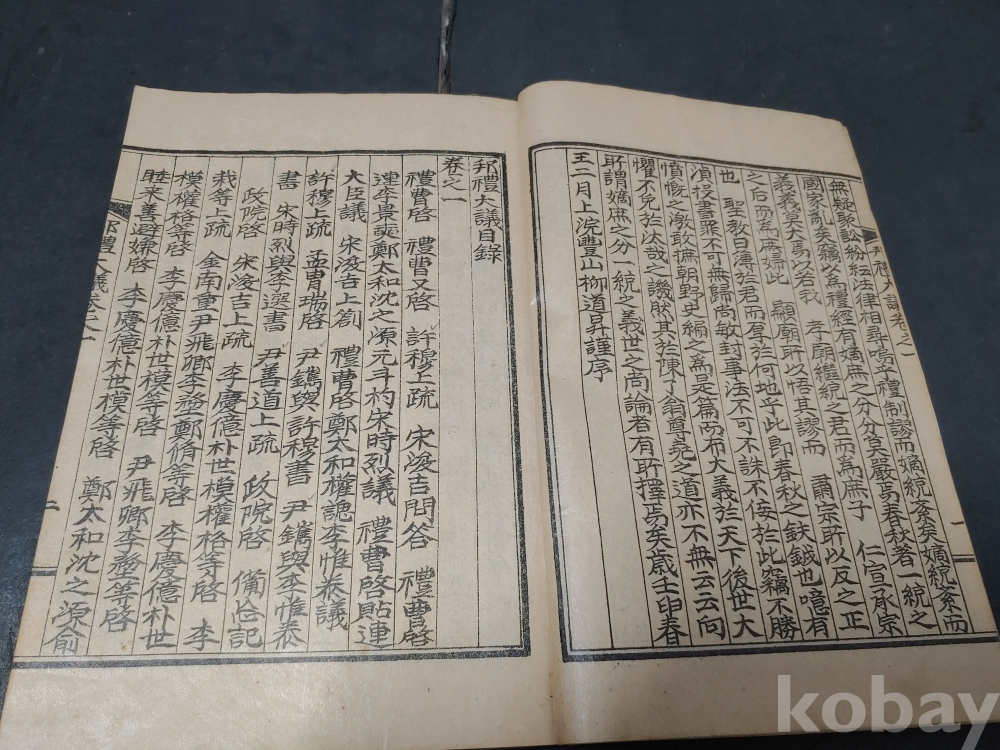 無疑聚訟紛紜法律相尋嗚乎禮制謬而嫡統紊矣嫡統紊而
國家亂矣竊以爲禮經有嫡庶之分分莫嚴焉春秋著一統之
義義莫大焉以若我 孝廟繼統之君而爲庶子 仁宣承宗
之后而爲庶婦此 顯廟所以悟其謬而 肅宗所以反之正
也 聖教曰薄於君而厚於何地乎此即春秋之鈇鉞也噫有
湞投書罪不可無歸尚敏封事法不可不誅不侫於此竊不勝
憤慨之激敢撫朝野史編之爲是篇而布大義於天下後世大
懼不免於汰哉之譏然其於陳了翁尊堯之道亦不無云云向
所謂嫡庶之分一統之義世之尚論者有所擇焉矣歲壬寅春
王二月上浣豐山柳道昇謹序
邦禮大議卷之一
一
邦禮大議目錄
卷之一
禮曹啓 禮曹又啓 許穆上疏 宋浚吉問答 禮曹啓
連李景奭鄭太和沈之源元斗杓宋時烈議 禮曹啓貼連
大臣議 宋浚吉上箚 禮曹啓鄭太和權諰李惟泰議
許穆上疏 孟胄瑞啓 尹鑴與許穆書 尹鑴與李惟泰
書 宋時烈與李選書 尹善道上疏 政院啓 備忘記
政院啓 宋浚吉上疏 李慶億朴世模權格等啓 李
栽等上疏 金南重尹飛卿李䎘鄭脩等啓 李慶億朴世
模權格等啓 李慶億朴世模等啓 尹飛卿李䎘等啓
睦来善避嫌啓 李慶億朴世模等啓 鄭太和沈之源俞
邦禮大議卷之一
二
kobay